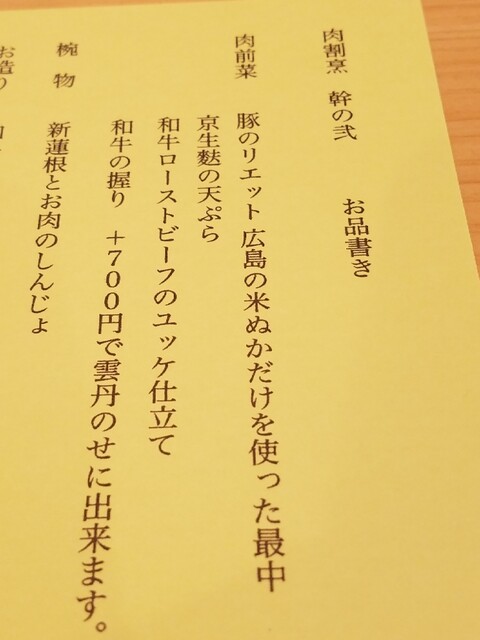 肉割烹 幹の弐 お品書き
肉前菜 豚のリエット 広島の米ぬかだけを使った最中
京生麩の天ぷら
和牛ローストビーフのユッケ仕立て
和牛の握り +700円で雲丹のせに出来ます。
椀物 新蓮根とお肉のしんじょ
お造り